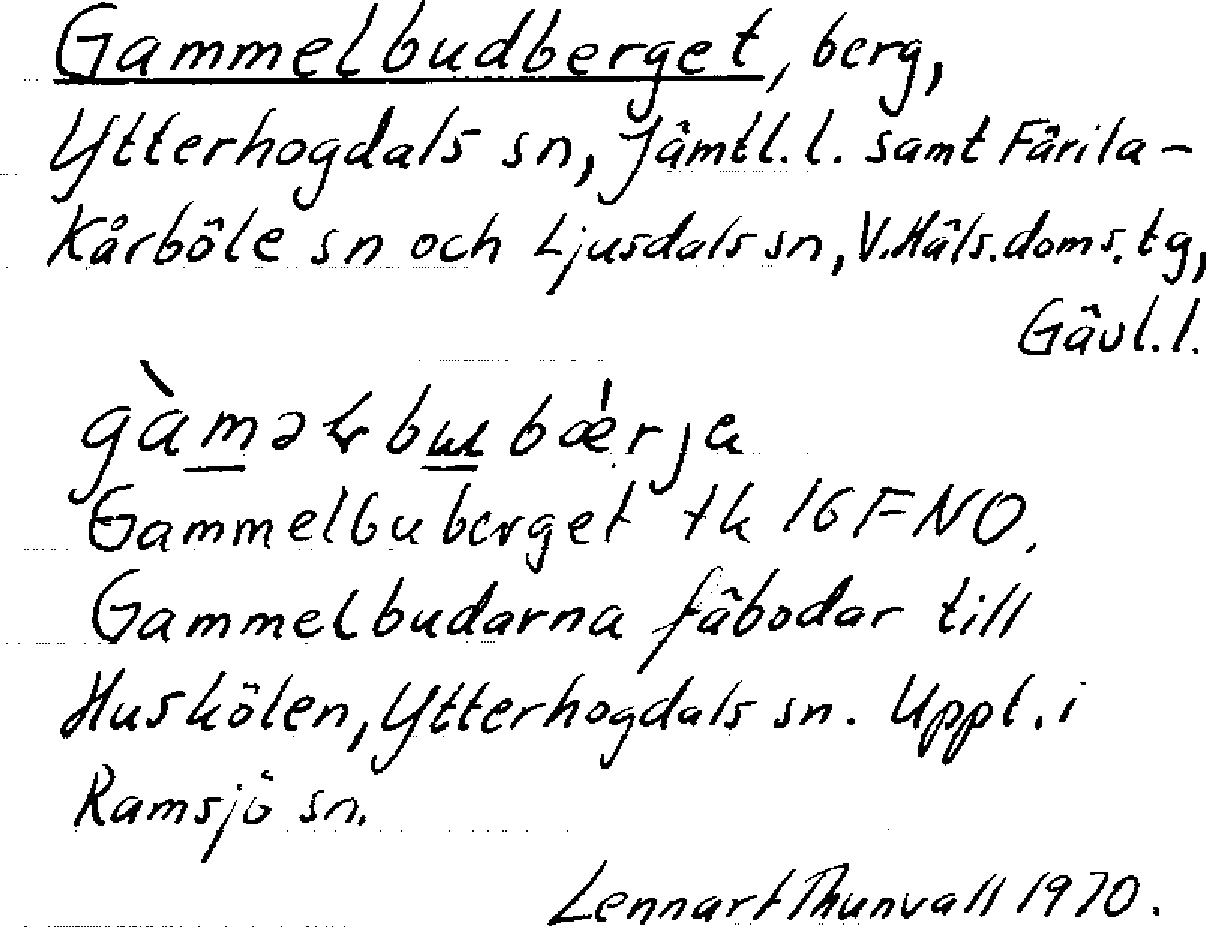 Gammelbudberget, berg,
Ytterhogdals sn, Jämtl.l. samt Färila-
Kårböle sn och Ljusdals sn, V.Häls.doms.tg,
Gävl.l.
Gammelbuberget tk 16 F NO.
Gammelbudarna fäbodar till
Huskölen, Ytterhogdals sn. Uppt. i
Ramsjö sn.
Lennart Thunvall 1970.